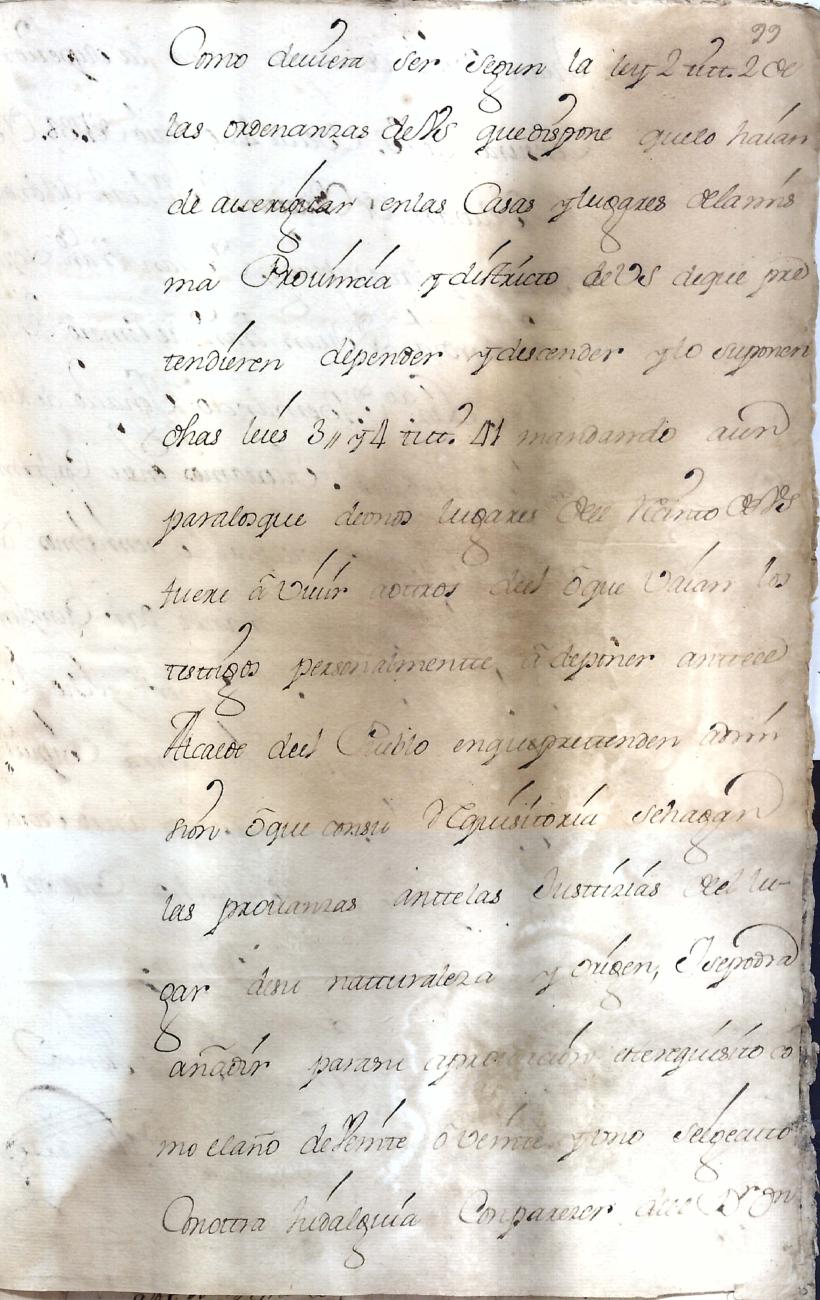 99
Como deuiera ser segun la ley 2 titt. 2 de
las ordenanzas de VS que dispone que lo haian
de aueriguar en las Casas y lugares de la mis
ma Prouincia y districto de VS de que pre
tendieren depender y descender y lo suponen
dhas leies 3,, y 4 titt.o 41 mandando aun
para los que de unos lugares del Rcinto de VS
fuere â Viuir a otros del ô que Vaian los
testigos personalmente â deponer ante el
Alcalde del Pueblo en que pretenden admi
sion ô que con su Requisitoria se hagan
las prouanzas antte las Justtizias del lu-
gar de su natturaleza y origen, I se podra
añadir para su este rrequisito co
mo el año de Veinte ô veinte y uno se
Con ottra hidalguia Con parezer del Dr Dn